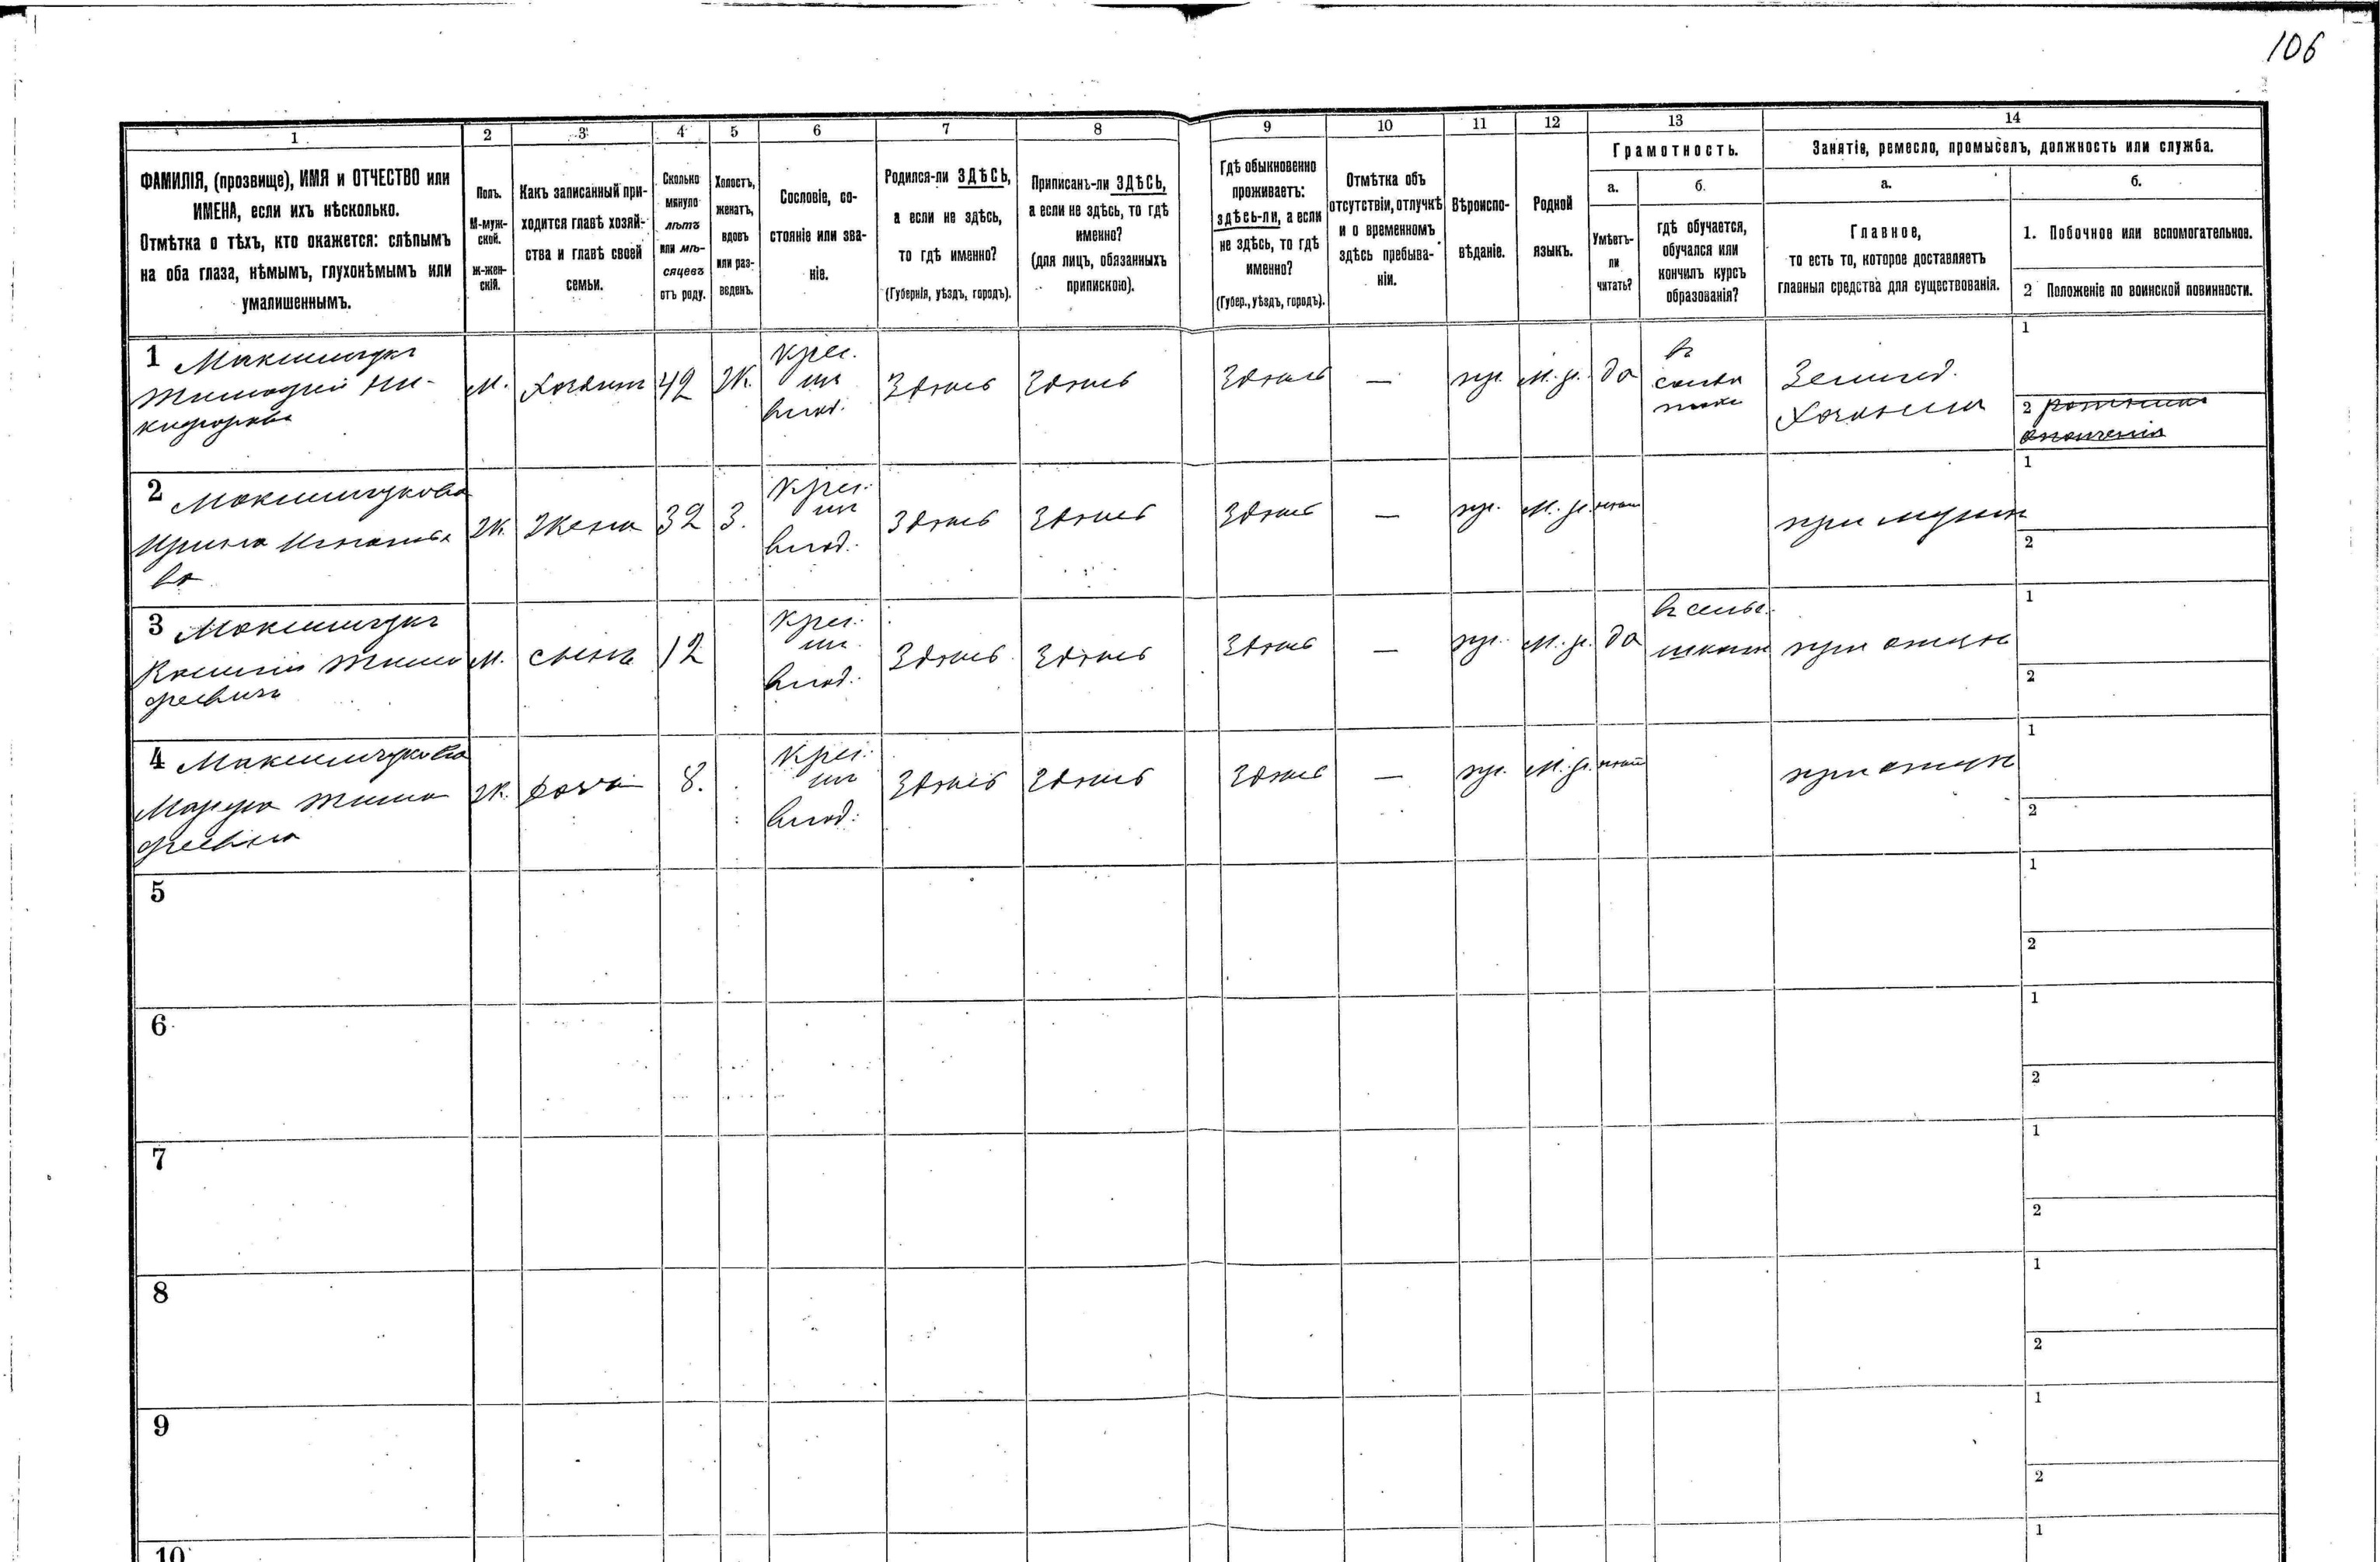 106
1
2
3
4
5
6
7
8
9
10
11
12
13
14
ФАМИЛІЯ, (прозвище), ИМЯ и ОТЧЕСТВО или
ИМЕНА, если ихъ нѣсколько.
Отмѣтка о тѣхъ, кто окажется: слѣпымъ
на оба глаза, нѣмымъ, глухонѣмымъ или
умалишеннымъ.
Полъ.
М-муж-
ской.
ж-жен-
скій.
Какъ записанный при-
ходится главѣ хозяй-
ства и главѣ своей
семьи.
Сколько
минуло
лѣтъ
или мѣ-
сяцевъ
отъ роду.
Холостъ,
женатъ,
вдовъ
или раз-
веденъ.
Сословіе, со-
стояніе или зва-
ніе.
Родился-ли ЗДѢСЬ,
а если не здѣсь,
то гдѣ именно?
(Губернія, уѣздъ, городъ).
Приписанъ-ли ЗДѢСЬ,
а если не здѣсь, то гдѣ
именно?
(для лицъ, обязанныхъ
припискою).
Гдѣ обыкновенно
проживаетъ:
здѣсь-ли, а если
не здѣсь, то гдѣ
именно?
(Губер., уѣздъ, городъ).
Отмѣтка объ
отсутствіи, отлучкѣ
и о временномъ
здѣсь пребыва-
ніи.
Вѣроиспо-
вѣданіе.
Родной
языкъ.
Грамотность.
а.
Умѣетъ-
ли
читать?
б.
гдѣ обучается,
обучался или
кончилъ курсъ
образованія?
Занятіе, ремесло, промыселъ, должность или служба.
а.
Главное,
то есть то, которое доставляетъ
главныя средства для существованія.
б.
1. Побочное или вспомогательное.
2 Положеніе по воинской повинности.
1 Максимчукъ
Тимофей Ни-
кифоровъ
М. 42 Ж.
Крес.
влад.
Здѣсь Здѣсь Здѣсь — пр. М. р. да
въ
Землед.
1
2 ратникъ
ополченія
2 Максимчукова
Ирина
ва
Ж. Жена 32 З.
Крес.
влад.
Здѣсь Здѣсь Здѣсь — пр. М. р. нѣтъ
при мужѣ
1
2
3 Максимчукъ
Тимо
феевичъ
М. сынъ 12
Крес.
влад.
Здѣсь Здѣсь Здѣсь — пр. М. р. да
въ сельс.
школѣ
при отцѣ
1
2
4 Максимчукова
Тимо
феевна
Ж. дочь 8.
Крес.
влад.
Здѣсь Здѣсь Здѣсь — пр. М. р. нѣтъ
при отцѣ
1
2
5
1
2
6
1
2
7
1
2
8
1
2
9
1
2
10
1